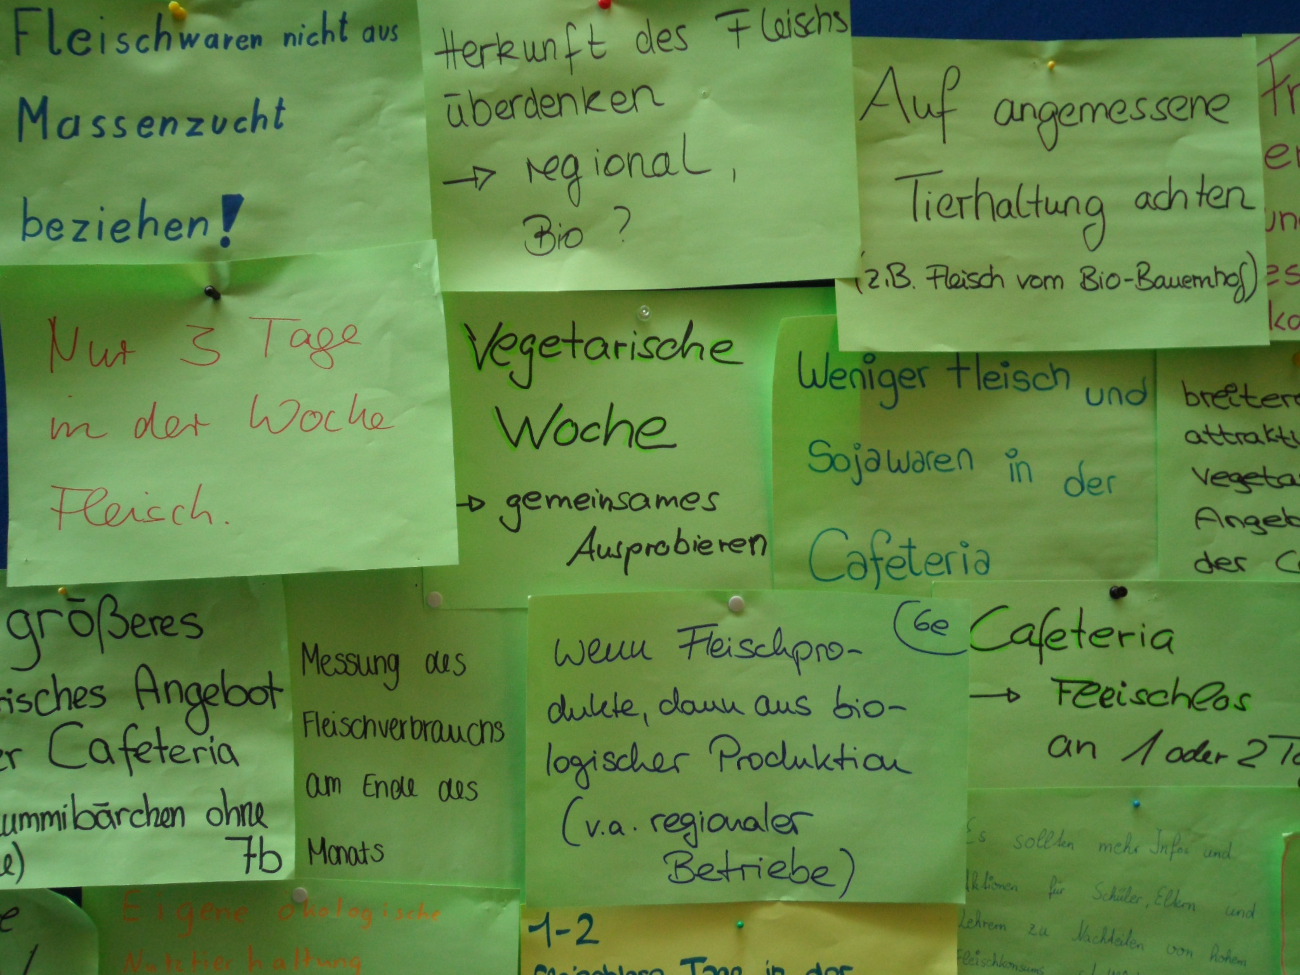 Fleischwaren nicht aus
Massenzucht
beziehen!
Herkunft des Fleischs
überdenken
→ regional,
Bio?
Auf angemessene
Tierhaltung achten
(z.B. Fleisch vom Bio-Bauernhof)
Nur 3 Tage
in der Woche
Fleisch.
Vegetarische
Woche
→ gemeinsames
Ausprobieren
Weniger Fleisch und
Sojawaren in der
Cafeteria
breitere
attrakti
vegeta
Angeb
der C
größeres
risches Angebot
er Cafeteria
ummibärchen ohne
e) 7b
Messung des
Fleischverbrauchs
am Ende des
Monats
6e
wenn Fleischpro-
dukte, dann aus bio-
logischer Produktion
(v.a. regionaler
Betriebe)
Cafeteria
→ Fleischlos
an 1 oder 2 Ta
Es sollten mehr Infos und
Aktionen für Schüler, Eltern und
Lehrern zu Nachteilen von hohem
Fleischkonsum
Eigene ökologische
Nutztierhaltung
1-2
fleischlose Tage in der